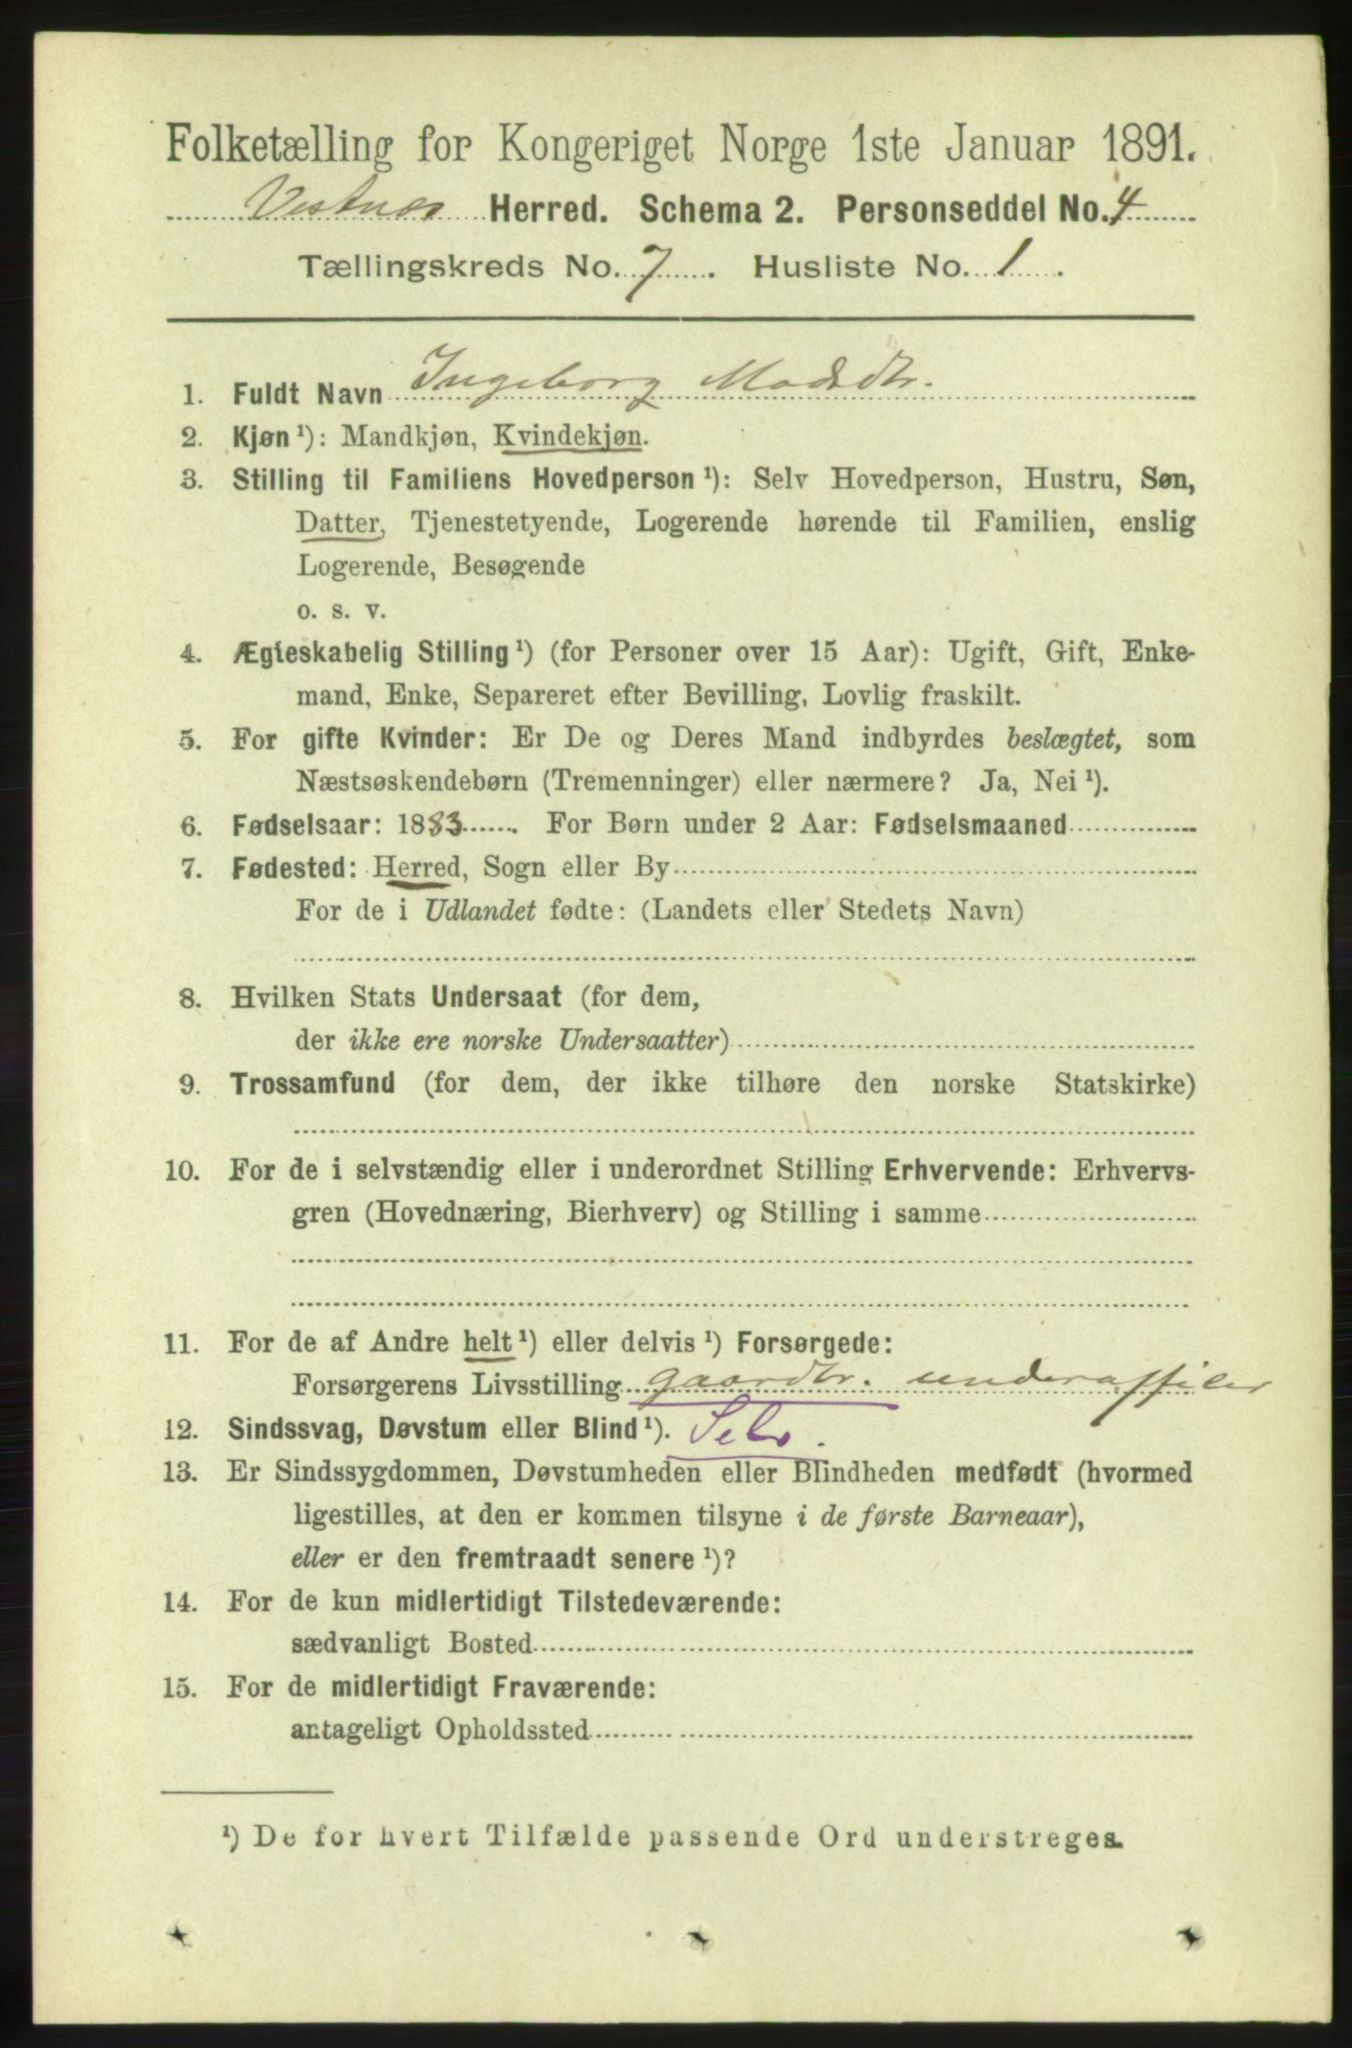 Folketælling for Kongeriget Norge 1ste Januar 1891.
Vestnes Herred. Schema 2. Personseddel No. 4
Tællingskreds No. 7. Husliste No. 1.
1. Fuldt Navn Ingeborg Madsdtr.
2. Kjøn ¹): Mandkjøn, Kvindekjøn.
3. Stilling til Familiens Hovedperson ¹): Selv Hovedperson, Hustru, Søn,
Datter, Tjenestetyende, Logerende hørende til Familien, enslig
Logerende, Besøgende
o. s. v.
4. Ægteskabelig Stilling ¹) (for Personer over 15 Aar): Ugift, Gift, Enke-
mand, Enke, Separeret efter Bevilling, Lovlig fraskilt.
5. For gifte Kvinder: Er De og Deres Mand indbyrdes beslægtet, som
Næstsøskendebørn (Tremenninger) eller nærmere? Ja, Nei ¹).
6. Fødselsaar: 1883. For Børn under 2 Aar: Fødselsmaaned
7. Fødested: Herred, Sogn eller By
For de i Udlandet fødte: (Landets eller Stedets Navn)
8. Hvilken Stats Undersaat (for dem,
der ikke ere norske Undersaatter)
9. Trossamfund (for dem, der ikke tilhøre den norske Statskirke)
10. For de i selvstændig eller i underordnet Stilling Erhvervende: Erhvervs-
gren (Hovednæring, Bierhverv) og Stilling i samme
11. For de af Andre helt ¹) eller delvis ¹) Forsørgede:
Forsørgerens Livsstilling gaardbr. underofficer
12. Sindssvag, Døvstum eller Blind ¹). Selv.
13. Er Sindssygdommen, Døvstumheden eller Blindheden medfødt (hvormed
ligestilles, at den er kommen tilsyne i de første Barneaar),
eller er den fremtraadt senere ¹)?
14. For de kun midlertidigt Tilstedeværende:
sædvanligt Bosted
15. For de midlertidigt Fraværende:
antageligt Opholdssted
¹) De for hvert Tilfælde passende Ord understreges.